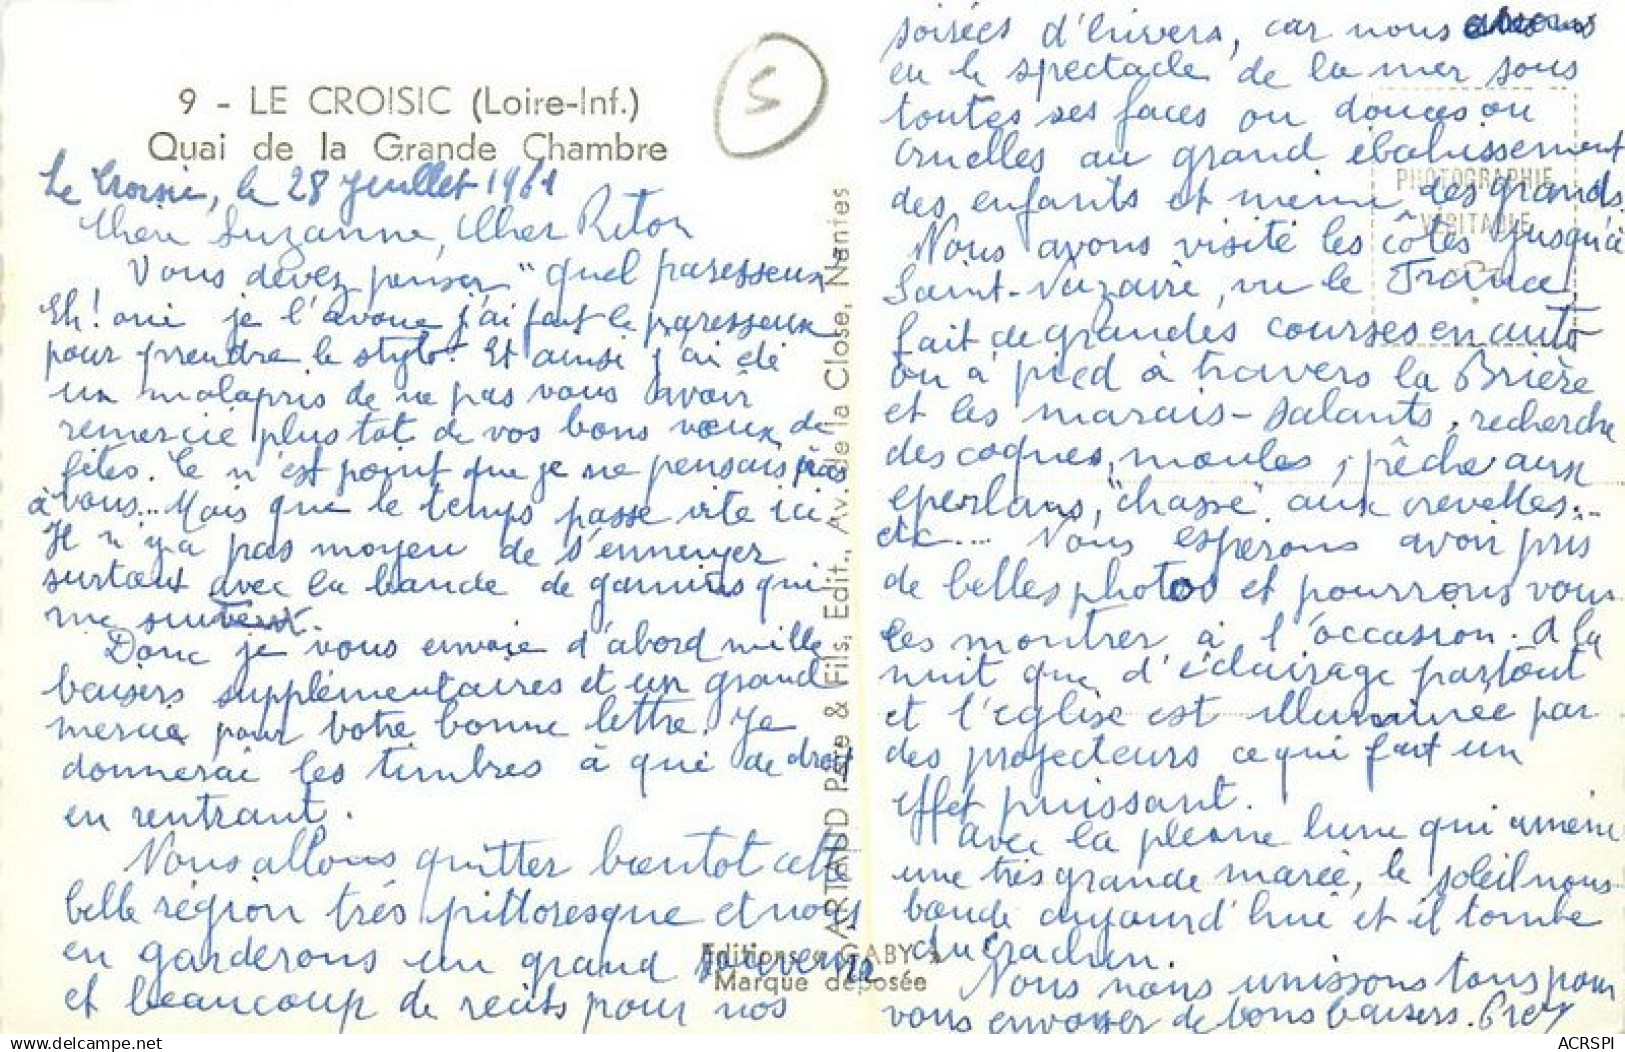 9 - LE CROISIC (Loire-Inf.)
Quai de la Grande Chambre
5
Le Croisic, le 28 Juillet 1961
Chère Suzanne, Cher Riton
Vous devez penser "quel paresseux
Eh! oui je l'avoue j'ai fait le paresseux
pour prendre le stylo. Et ainsi j'ai été
un malapris de ne pas vous avoir
remercié plus tôt de vos bons vœux de
fêtes. Ce n'est point que je ne pensais pas
à vous... Mais que le temps passe vite ici
Il n'y a pas moyen de s'ennuyer
surtout avec la bande de gamins qui
me suivent.
Donc je vous envoie d'abord mille
baisers supplémentaires et un grand
merci pour votre bonne lettre. Je
donnerai les timbres à qui de droit
en rentrant.
Nous allons quitter bientôt cette
belle région très pittoresque et nous
en garderons un grand souvenir
et beaucoup de récits pour nos
soirées d'hivers, car nous avons
eu le spectacle de la mer sous
toutes ses faces ou douces ou
cruelles au grand ébahissement
des enfants et même des grands.
Nous avons visité les côtes jusqu'à
Saint-Nazaire, vu le France,
fait de grandes courses en auto
ou à pied à travers la Brière
et les marais-salants, recherche
des coques, moules, pêche aux
eperlans, "chasse" aux crevettes...
etc... Nous espérons avoir pris
de belles photos et pourrons vous
les montrer à l'occasion. A la
nuit que d'éclairage partout
et l'église est illuminée par
des projecteurs ce qui fait un
effet puissant.
Avec la pleine lune qui amène
une très grande marée, le soleil nous
boude aujourd'hui et il tombe
du crachin.
Nous nous unissons tous pour
vous envoyer de bons baisers.
ARTAUD Père & Fils, Edit., Av. de la Close, Nantes
Editions GABY
Marque déposée
PHOTOGRAPHIE
VÉRITABLE
ACRSPI